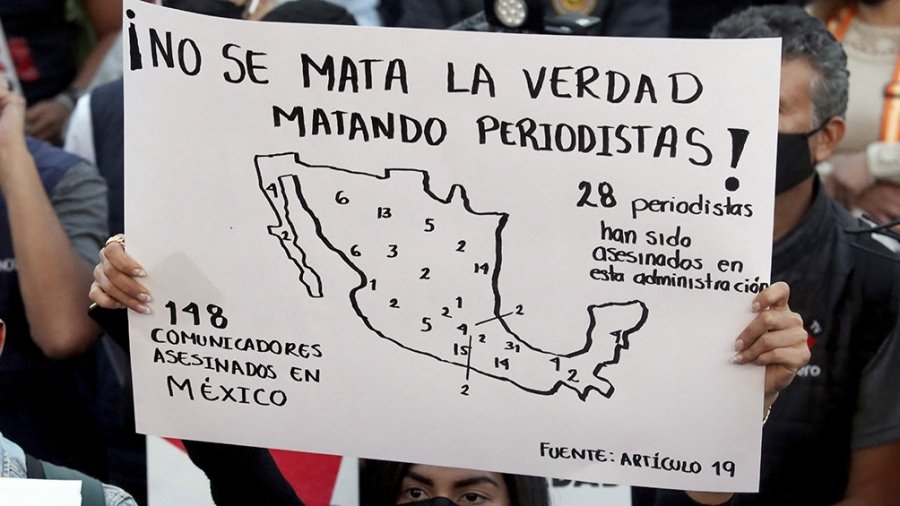 ¡NO SE MATA LA VERDAD
MATANDO PERIODISTAS!
28 periodistas
han sido
asesinados en
esta administración
4
6
13
5
2
6
3
2
14
2
1
2
1
2
2
5
4
2
15
31
14
4
2
1
2
148
COMUNICADORES
ASESINADOS EN
MÉXICO
FUENTE: ARTÍCULO 19